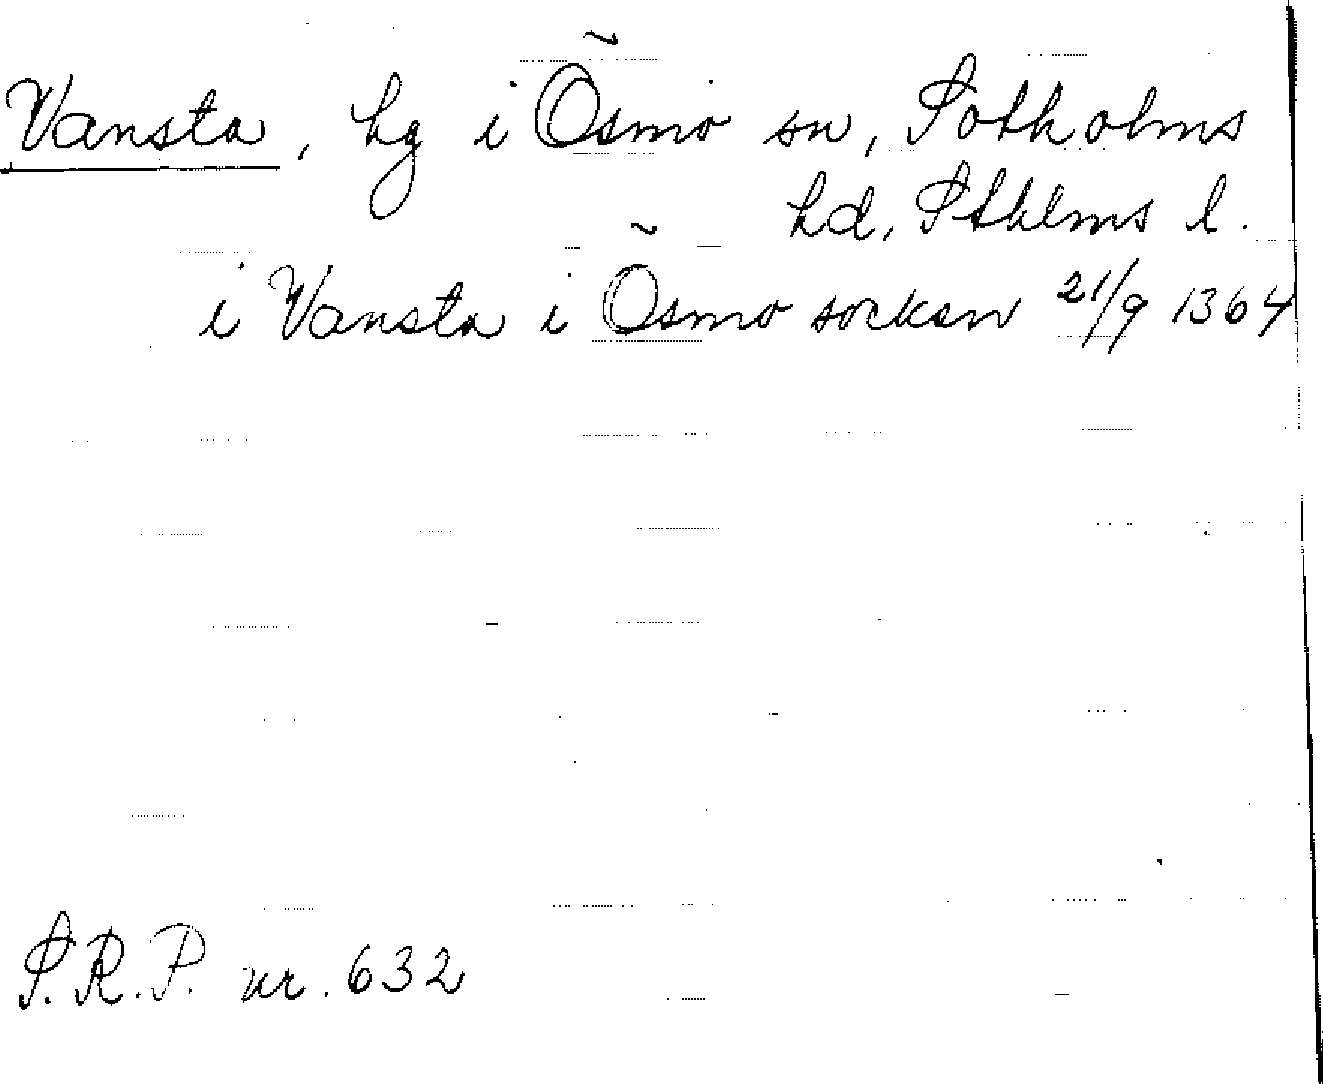 Vansta, hg i Ösmo sn, Sotholms
hd, Sthlms l.
i Vansta i Ösmo socken 21/9 1364
S.R.P. nr. 632